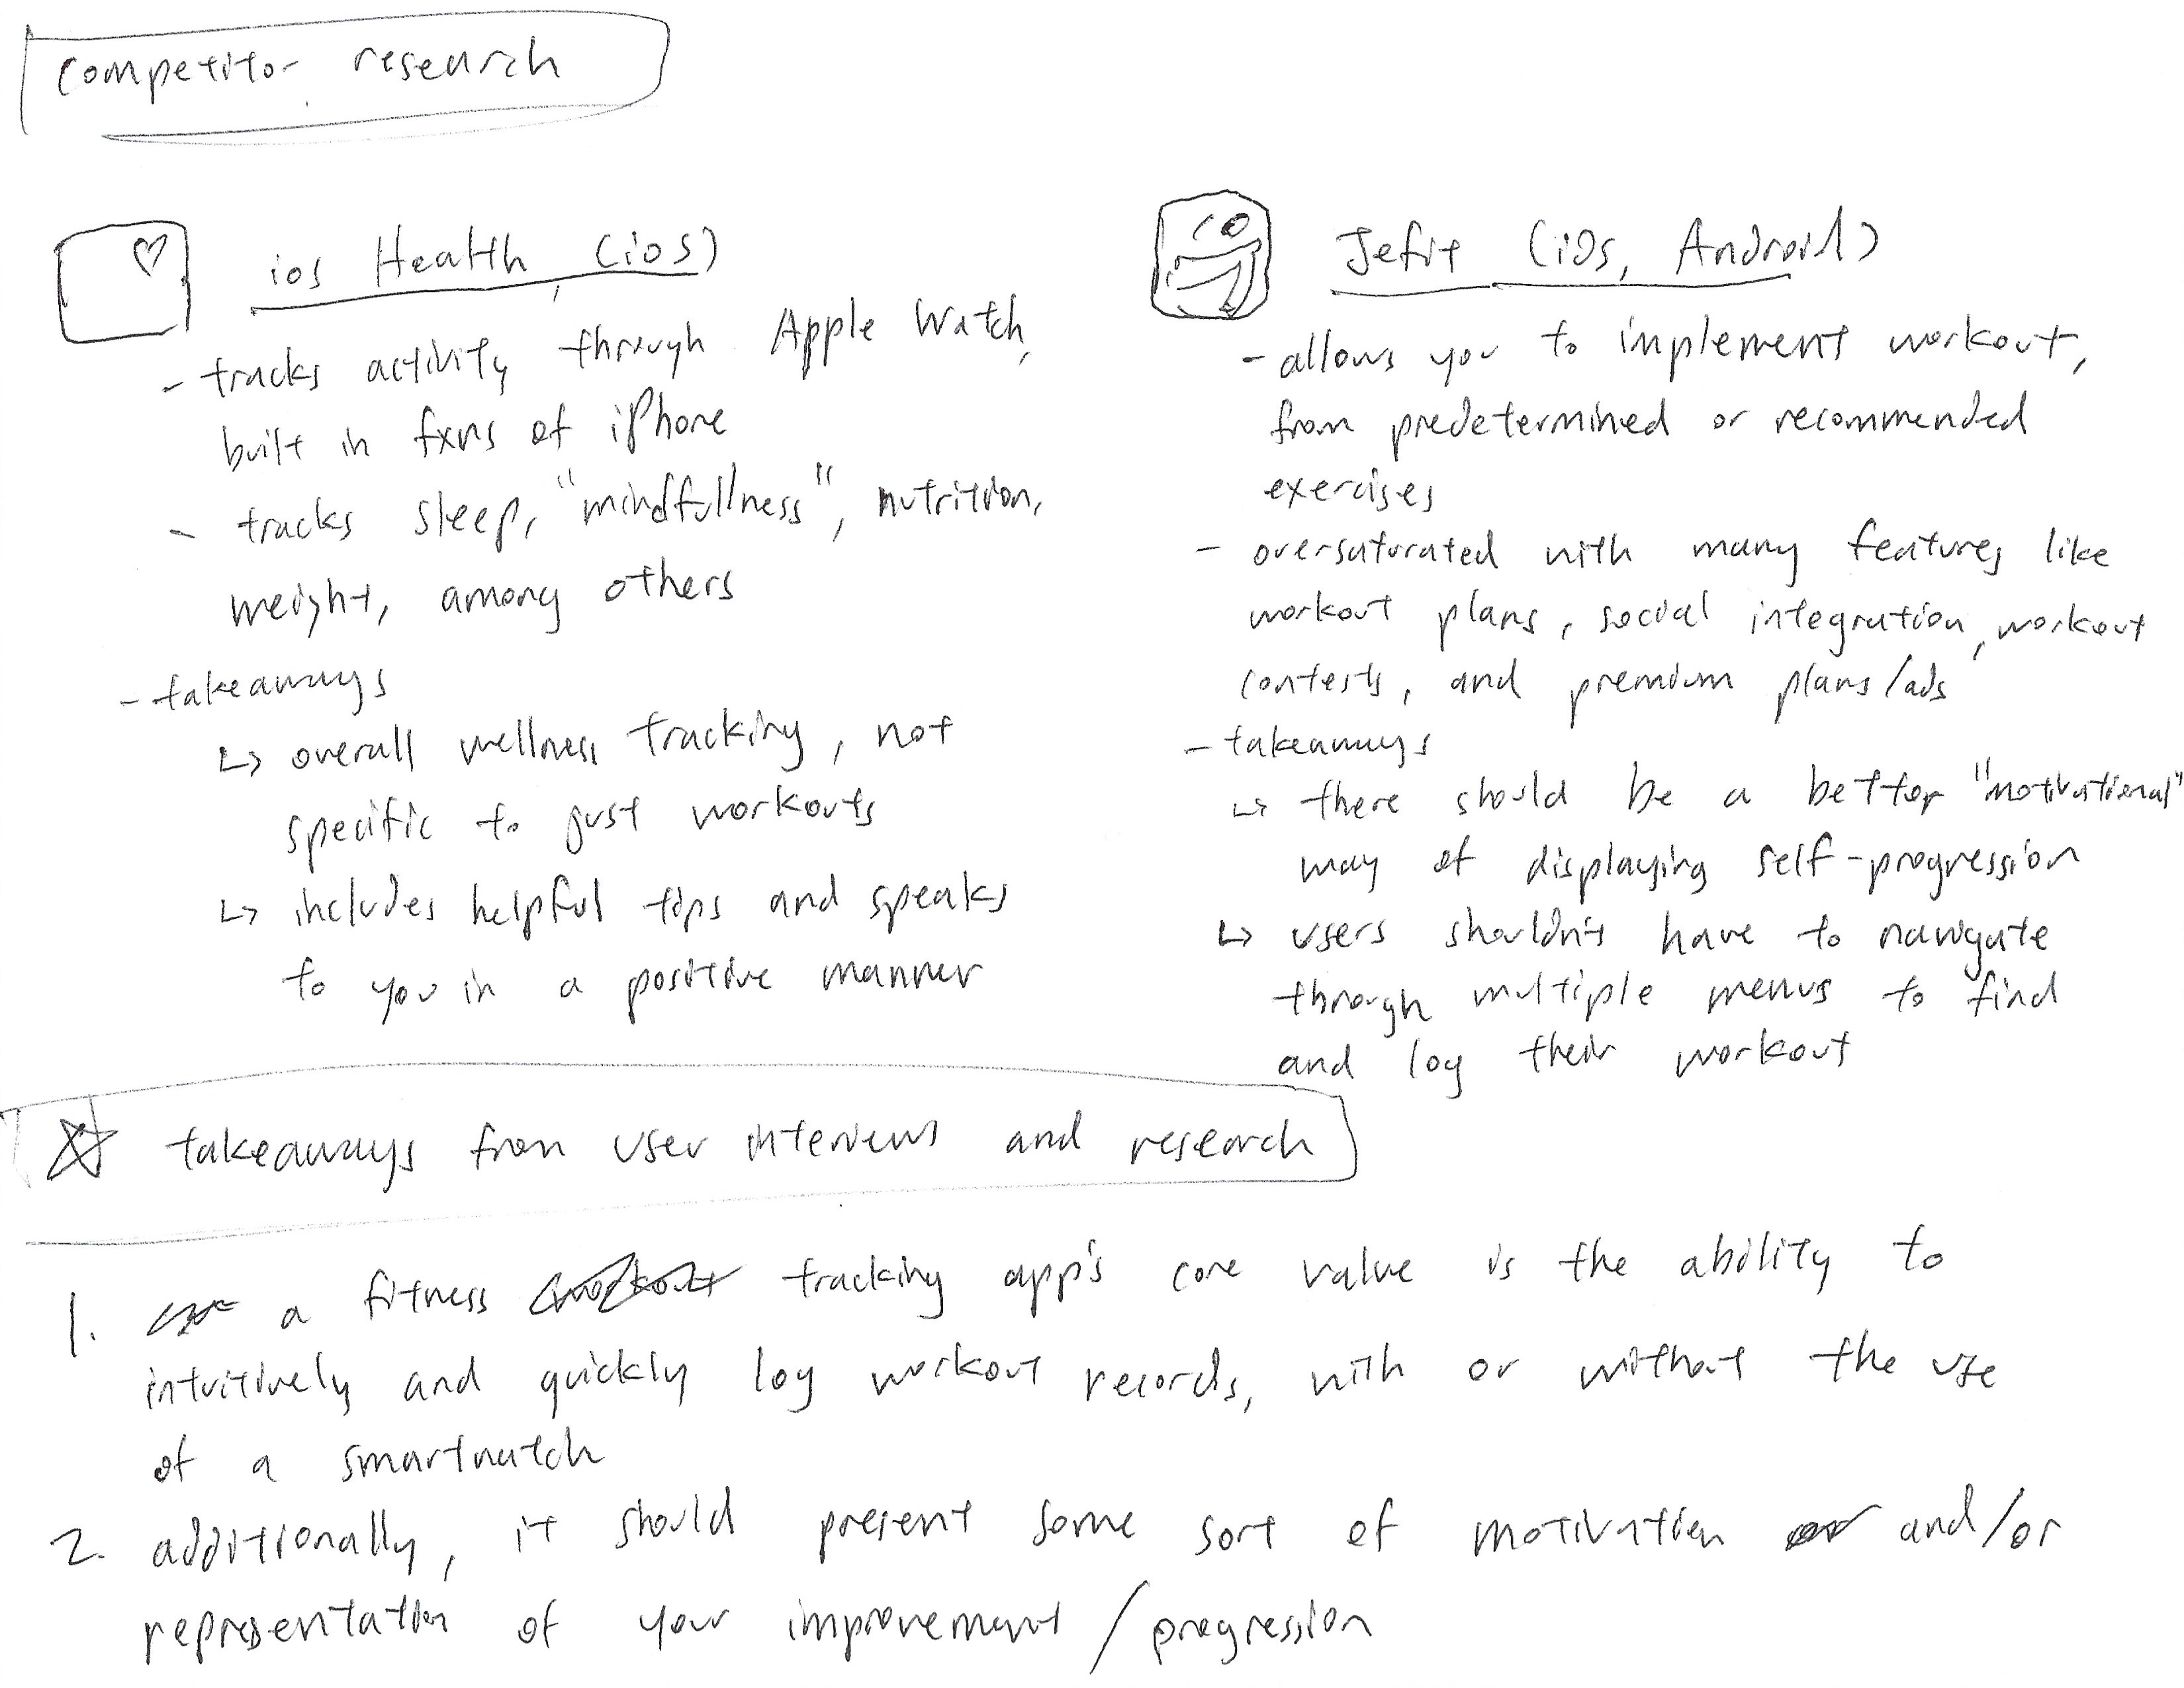 competitor research
ios Health (ios)
- tracks activity through Apple Watch,
built in fxns of iPhone
- tracks sleep, "mindfullness", nutrition,
weight, among others
- takeaways
↳ overall wellness tracking, not
specific to just workouts
↳ includes helpful tips and speaks
to you in a positive manner
Jefit (iOs, Android)
- allows you to implement workout,
from predetermined or recommended
exercises
- oversaturated with many features like
workout plans, social integration, workout
contests, and premium plans/ads
- takeaways
↳ there should be a better "motivational"
way of displaying self-progression
↳ users shouldn't have to navigate
through multiple menus to find
and log their workout
☆ takeaways from user interviews and research
1. a fitness workout tracking app's core value is the ability to
intuitively and quickly log workout records, with or without the use
of a smartwatch
2. additionally, it should present some sort of motivation and/or
representation of your improvement / progression